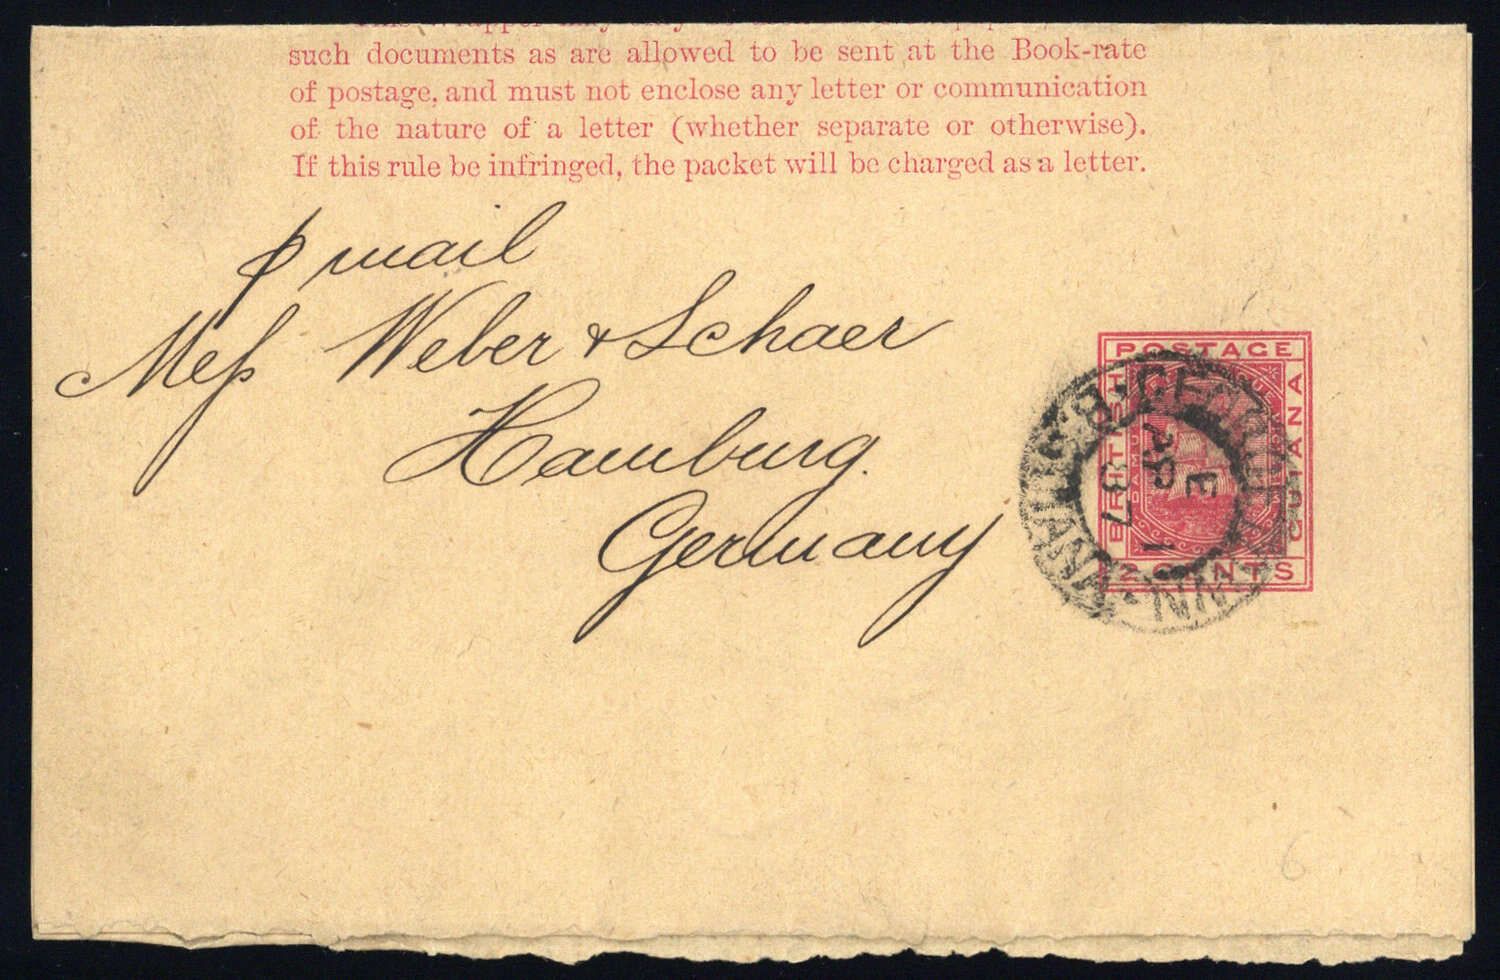 This Wrapper may only be used
such documents as are allowed to be sent at the Book-rate
of postage, and must not enclose any letter or communication
of the nature of a letter (whether separate or otherwise).
If this rule be infringed, the packet will be charged as a letter.
p mail
Mess Weber & Schaer
Hamburg.
Germany
POSTAGE
BRITISH
GUIANA
2 CENTS
GEORGETOWN
B. GUIANA
E
AP 1
87
6